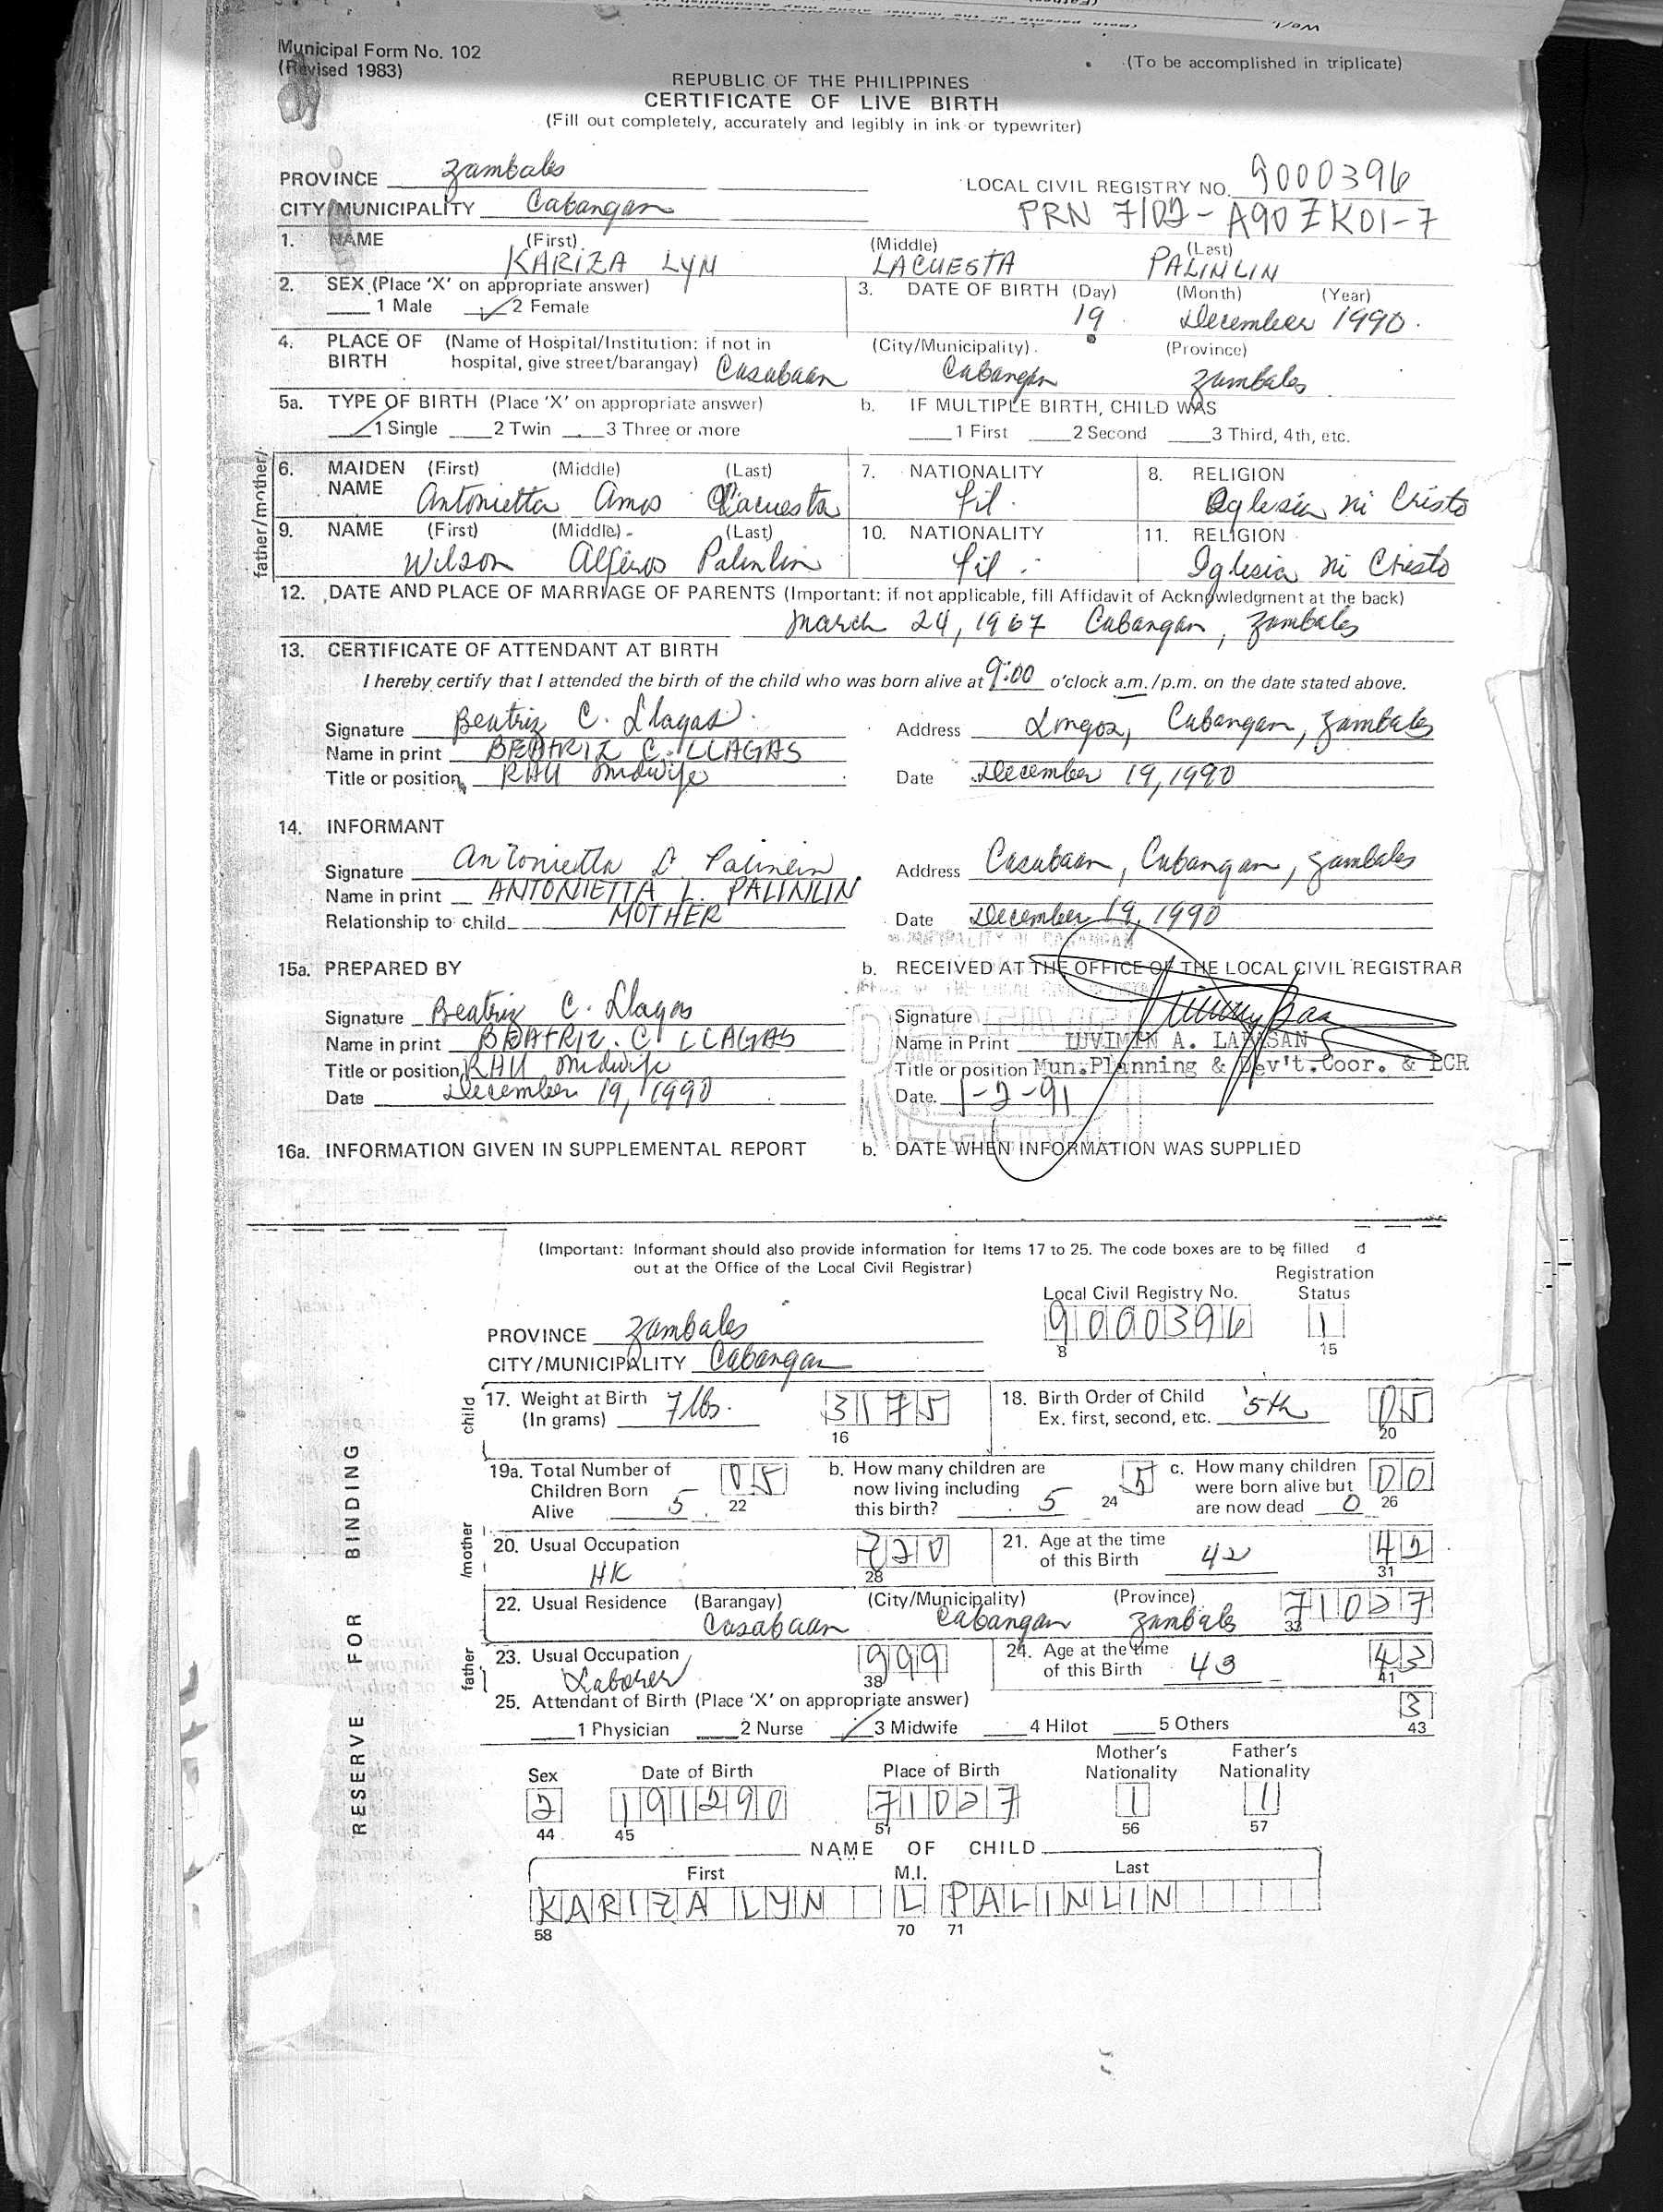 Municipal Form No. 102
(Revised 1983)
(To be accomplished in triplicate)
REPUBLIC OF THE PHILIPPINES
CERTIFICATE OF LIVE BIRTH
(Fill out completely, accurately and legibly in ink or typewriter)
PROVINCE Zambales
LOCAL CIVIL REGISTRY NO. 9000396
CITY/MUNICIPALITY Cabangan
PRN 7102-A90ZK01-7
1. NAME (First) (Middle) (Last)
KARIZA LYN LACUESTA PALINLIN
2. SEX (Place 'X' on appropriate answer) 3. DATE OF BIRTH (Day) (Month) (Year)
1 Male 2 Female 19 December 1990.
4. PLACE OF (Name of Hospital/Institution: if not in (City/Municipality). (Province)
BIRTH hospital, give street/barangay) Casabaan Cabangan Zambales
5a. TYPE OF BIRTH (Place 'X' on appropriate answer) b. IF MULTIPLE BIRTH, CHILD WAS
1 Single 2 Twin 3 Three or more 1 First 2 Second 3 Third, 4th, etc.
father/mother/
6. MAIDEN (First) (Middle) (Last) 7. NATIONALITY 8. RELIGION
NAME Antonietta Amos Lacuesta Fil. Iglesia ni Cristo
9. NAME (First) (Middle) (Last) 10. NATIONALITY 11. RELIGION
Wilson Alferos Palinlin Fil. Iglesia ni Cristo
12. DATE AND PLACE OF MARRIAGE OF PARENTS (Important: if not applicable, fill Affidavit of Acknowledgment at the back)
March 24, 1967 Cabangan, Zambales
13. CERTIFICATE OF ATTENDANT AT BIRTH
I hereby certify that I attended the birth of the child who was born alive at 9:00 o'clock a.m./p.m. on the date stated above.
Signature Beatriz C. Llagas. Address Longos, Cabangan, Zambales
Name in print BEATRIZ C. LLAGAS
Title or position RHU Midwife Date December 19, 1990
14. INFORMANT
Signature Antonietta L. Palinlin Address Casabaan, Cabangan, Zambales
Name in print ANTONIETTA L. PALINLIN
Relationship to child MOTHER Date December 19, 1990
MUNICIPALITY OF CABANGAN
15a. PREPARED BY b. RECEIVED AT THE OFFICE OF THE LOCAL CIVIL REGISTRAR
Signature Beatriz C. Llagas Signature
Name in print BEATRIZ. C. LLAGAS Name in Print
Title or position RHU Midwife Title or position Mun.Planning & Dev't.Coor. & LCR
Date December 19, 1990 Date. 1-2-91
16a. INFORMATION GIVEN IN SUPPLEMENTAL REPORT b. DATE WHEN INFORMATION WAS SUPPLIED
(Important: Informant should also provide information for Items 17 to 25. The code boxes are to be filled d
out at the Office of the Local Civil Registrar)
Registration
Local Civil Registry No. Status
9000396 1
8 15
PROVINCE Zambales
CITY/MUNICIPALITY Cabangan
child
17. Weight at Birth 7 lbs. 3175 18. Birth Order of Child 5th 05
(In grams) Ex. first, second, etc.
16 20
19a. Total Number of 05 b. How many children are 5 c. How many children 00
Children Born now living including were born alive but
Alive 5 22 this birth? 5 24 are now dead 0 26
/mother
20. Usual Occupation 220 21. Age at the time 42 42
HK 28 of this Birth 31
22. Usual Residence (Barangay) (City/Municipality) (Province) 71027
Casabaan Cabangan Zambales 33
father
23. Usual Occupation 999 24. Age at the time 43 43
Laborer 38 of this Birth 41
25. Attendant of Birth (Place 'X' on appropriate answer) 3
1 Physician 2 Nurse 3 Midwife 4 Hilot 5 Others 43
RESERVE FOR BINDING
Mother's Father's
Sex Date of Birth Place of Birth Nationality Nationality
2 191290 71027 1 1
44 45 51 56 57
NAME OF CHILD
First M.I. Last
KARIZA LYN L PALINLIN
58 70 71